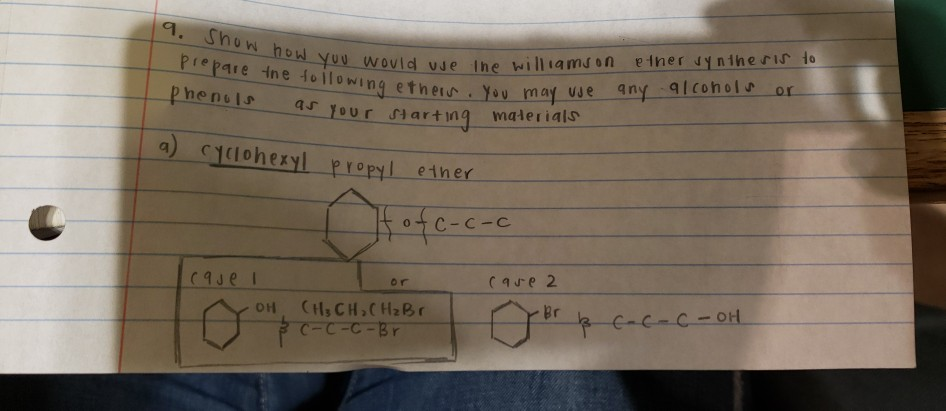 9. Show how you would use the williamson ether synthesis to
prepare the following ethers. You may use any alcohols or
phenols as your starting materials
a) cyclohexyl propyl ether
o C-C-C
case 1 or case 2
OH CH3CH2CH2Br Br & C-C-C-OH
& C-C-C-Br